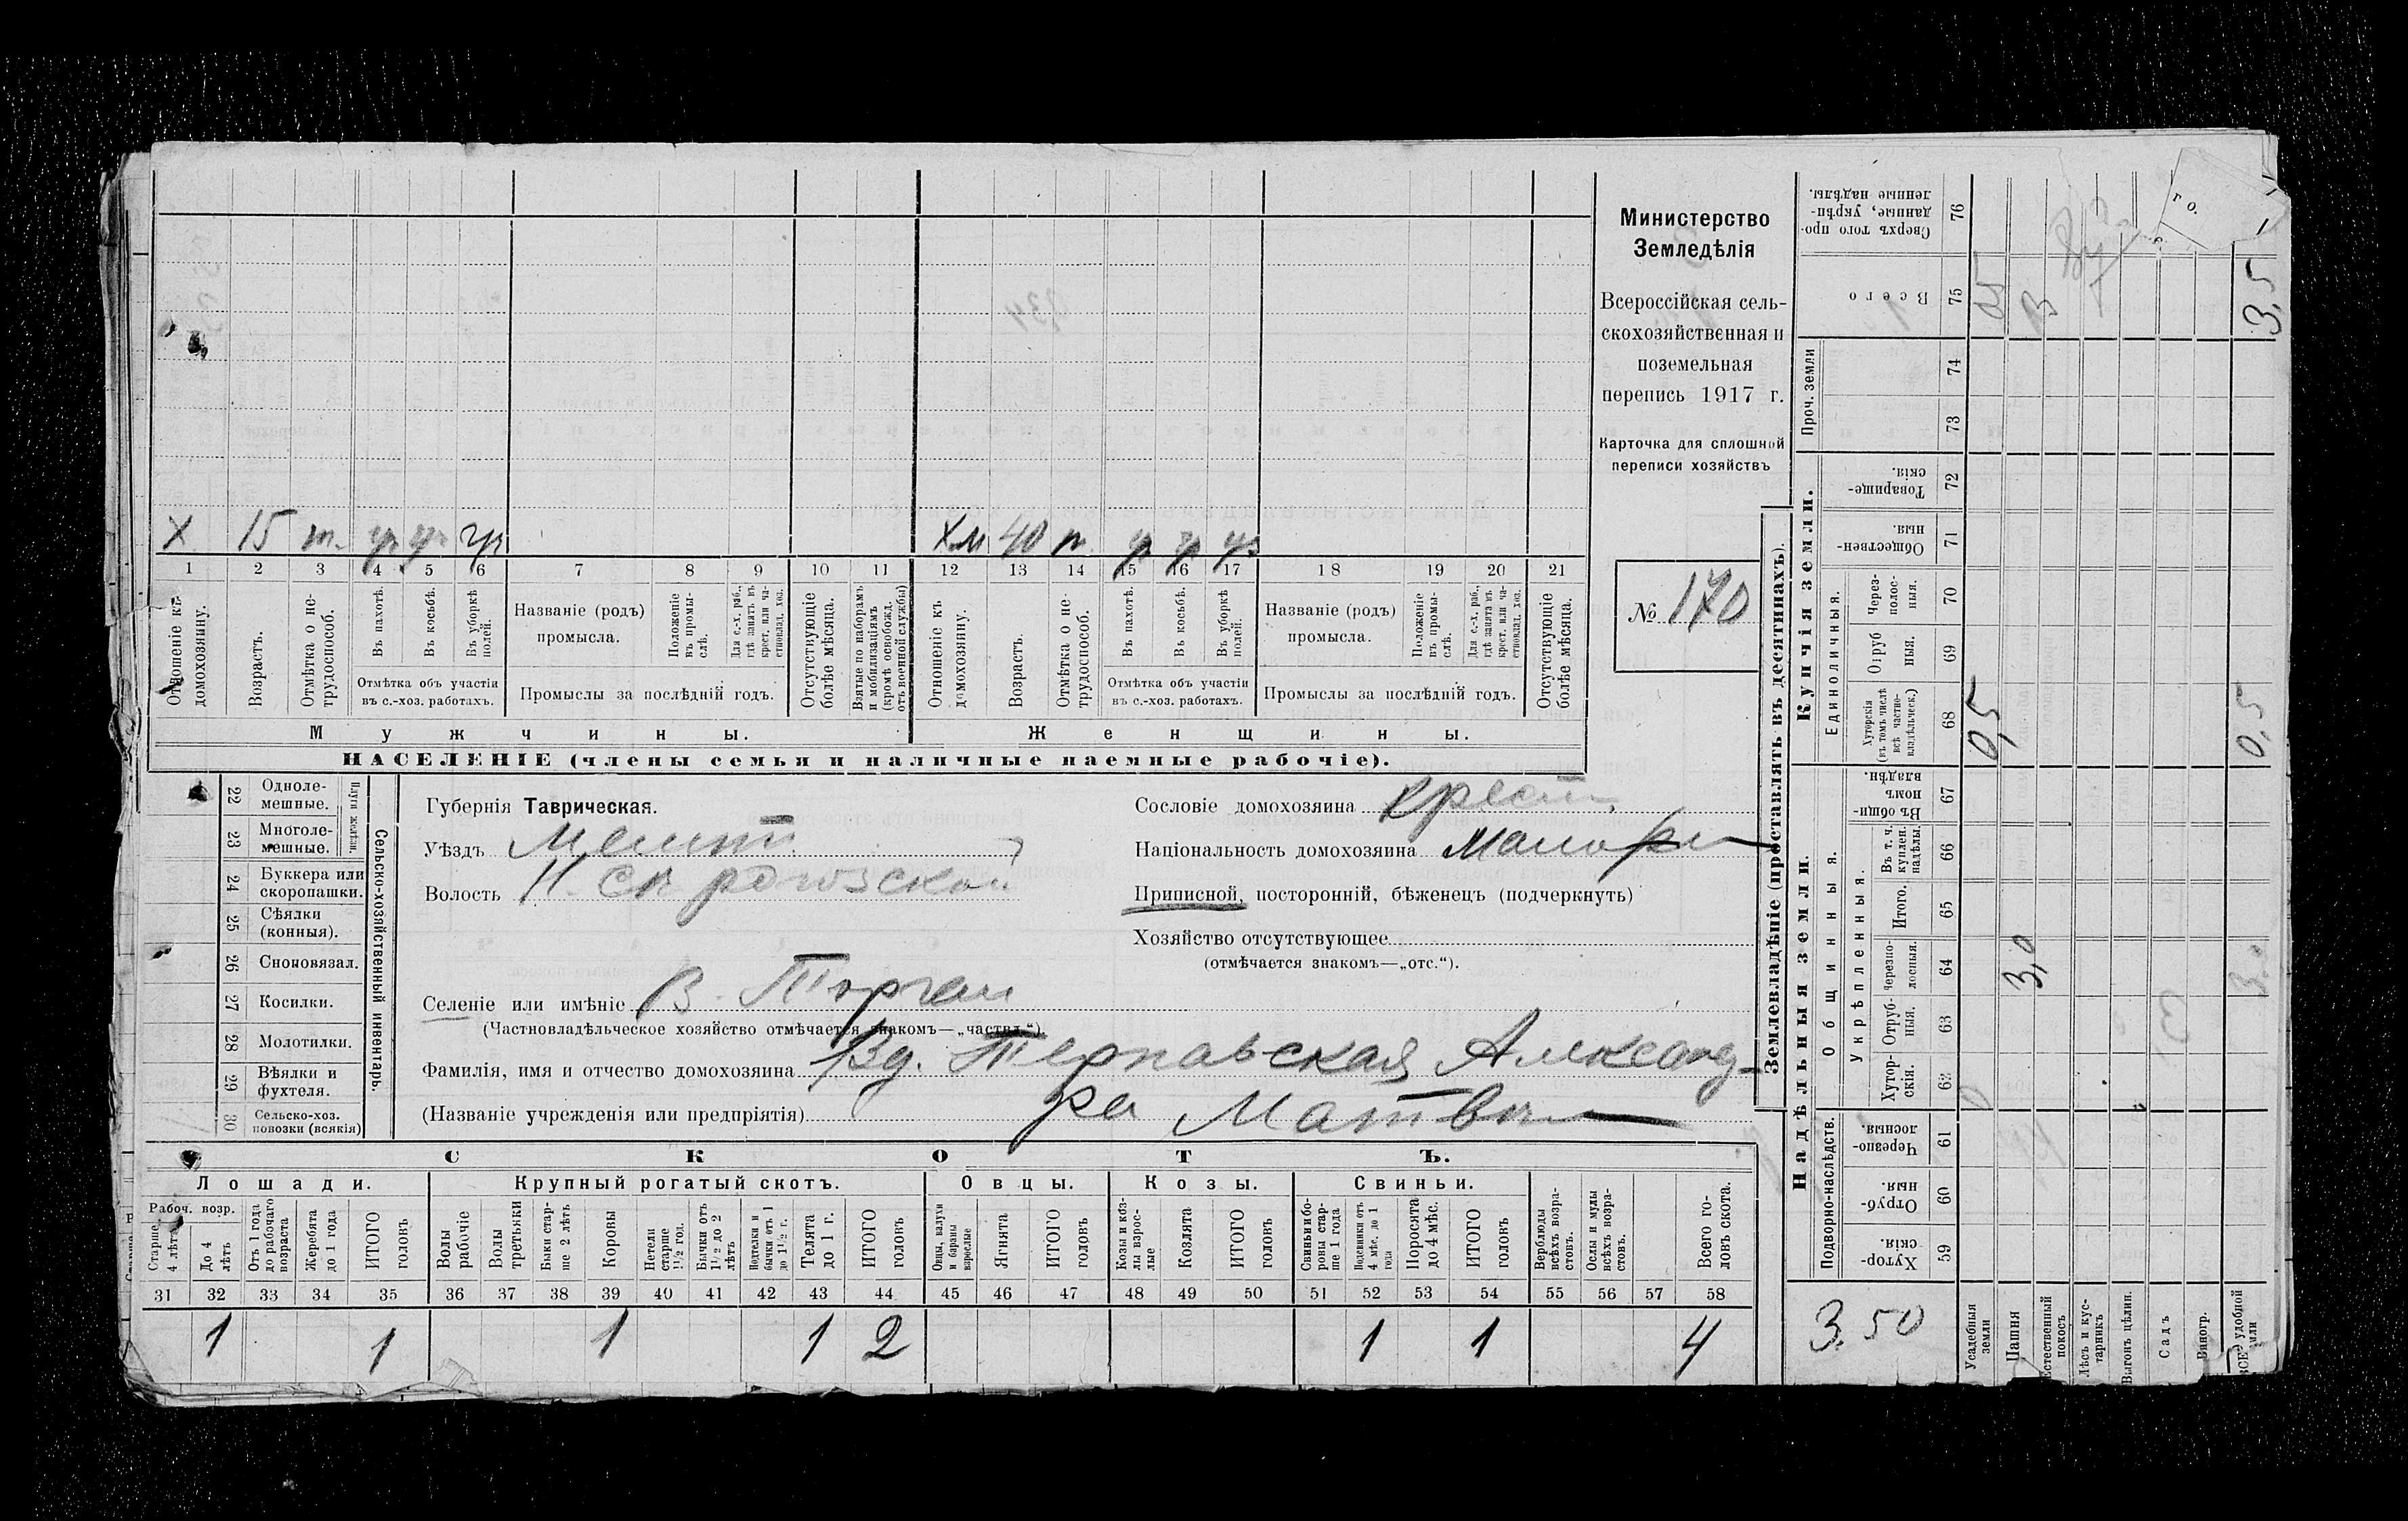 Министерство
Земледѣлія
Всероссійская сель-
скохозяйственная и
поземельная
перепись 1917 г.
Карточка для сплошной
переписи хозяйствъ
№ 170
Х 15 т.
Хм 40
1 2 3 4 5 6 7 8 9 10 11 12 13 14 15 16 17 18 19 20 21
Отношеніе къ домохозяину.
Возрастъ.
Отмѣтка о не-трудоспособ.
Въ пахотѣ.
Въ косьбѣ.
Въ уборкѣ полей.
Отмѣтка объ участіи
въ с.-хоз. работахъ.
Названіе (родъ)
промысла.
Положеніе въ промы-слѣ.
Для с.-х. раб., гдѣ занятъ въ крест. или ча-стновлад. хоз.
Промыслы за послѣдній годъ.
Отсутствующіе болѣе мѣсяца.
Взятые по наборамъ и мобилизаціямъ (кромѣ освобожд. отъ военной службы)
Отношеніе къ домохозяину.
Возрастъ.
Отмѣтка о не-трудоспособ.
Въ пахотѣ.
Въ косьбѣ.
Въ уборкѣ полей.
Отмѣтка объ участіи
въ с.-хоз. работахъ.
Названіе (родъ)
промысла.
Положеніе въ промы-слѣ.
Для с.-х. раб., гдѣ занята въ крест. или ча-стновлад. хоз.
Промыслы за послѣдній годъ.
Отсутствующіе болѣе мѣсяца.
Мужчины.
Женщины.
НАСЕЛЕНІЕ (члены семьи и наличные наемные рабочіе).
22 Одноле-мешные.
23 Многоле-мешные.
Плуги желѣзн.
24 Буккера или скоропашки.
25 Сѣялки (конныя).
26 Сноповязал.
27 Косилки.
28 Молотилки.
29 Вѣялки и фухтеля.
30 Сельско-хоз. повозки (всякія)
Сельско-хозяйственный инвентарь.
Губернія Таврическая.
Уѣздъ Мелит.
Волость
Селеніе или имѣніе В. Торгаи
(Частновладѣльческое хозяйство отмѣчается знакомъ—„частвл.“)
Фамилія, имя и отчество домохозяина Вд. Александ-
(Названіе учрежденія или предпріятія) ра
Сословіе домохозяина крест.
Національность домохозяина Малорос
Приписной, посторонній, бѣженецъ (подчеркнуть)
Хозяйство отсутствующее
(отмѣчается знакомъ—„отс.“).
СКОТЪ.
Лошади. Крупный рогатый скотъ. Овцы. Козы. Свиньи.
Рабоч. возр.
Старше 4 лѣтъ
До 4 лѣтъ
Отъ 1 года до рабочаго возраста
Жеребята до 1 года
ИТОГО головъ
Волы рабочіе
Волы третьяки
Быки стар-ше 2 лѣтъ
Коровы
Нетели старше 1½ год.
Бычки отъ 1½ до 2 лѣтъ
Подтелки и бычки отъ 1 до 1½ г.
Телята до 1 г.
ИТОГО головъ
Овцы, валухи и бараны взрослые
Ягнята
ИТОГО головъ
Козы и коз-лы взрос-лые
Козлята
ИТОГО головъ
Свиньи и бо-ровы стар-ше 1 года
Подсвинки отъ 4 мѣс. до 1 года
Поросята до 4 мѣс.
ИТОГО головъ
Верблюды всѣхъ возра-стовъ.
Ослы и мулы всѣхъ возра-стовъ.
Всего го-ловъ скота.
31 32 33 34 35 36 37 38 39 40 41 42 43 44 45 46 47 48 49 50 51 52 53 54 55 56 57 58
1 1 1 1 2 1 1 4
Землевладѣніе (проставлять въ десятинахъ).
Купчія земли.
Надѣльныя земли.
Сверхъ того про-данные, укрѣп-ленные надѣлы. 76
Всего 75
Проч. земли 74 73
Товарище-скія. 72
Обществен-ныя. 71
Единоличныя.
Через-полос-ныя. 70
Отруб ныя. 69
Хуторскія (въ томъ числѣ всѣ частно-владѣльческ.) 68
Общинныя.
Въ общи номъ владѣн. 67
Укрѣпленныя.
Въ т. ч. куплен. надѣлы. 66
Итого. 65
Черезпо-лосныя. 64
Отруб-ныя. 63
Хутор-скія. 62
Подворно-наслѣдств.
Черезпо-лосныя. 61
Отруб-ныя. 60
Хутор-скія. 59
3.50
Усадебныя земли
Пашня
Естественный покосъ
Лѣсъ и кус-тарникъ
Выгонъ цѣлин.
Садъ
Виногр.
удобной
0,5
3,0
3,5
0,5
3.0
го.